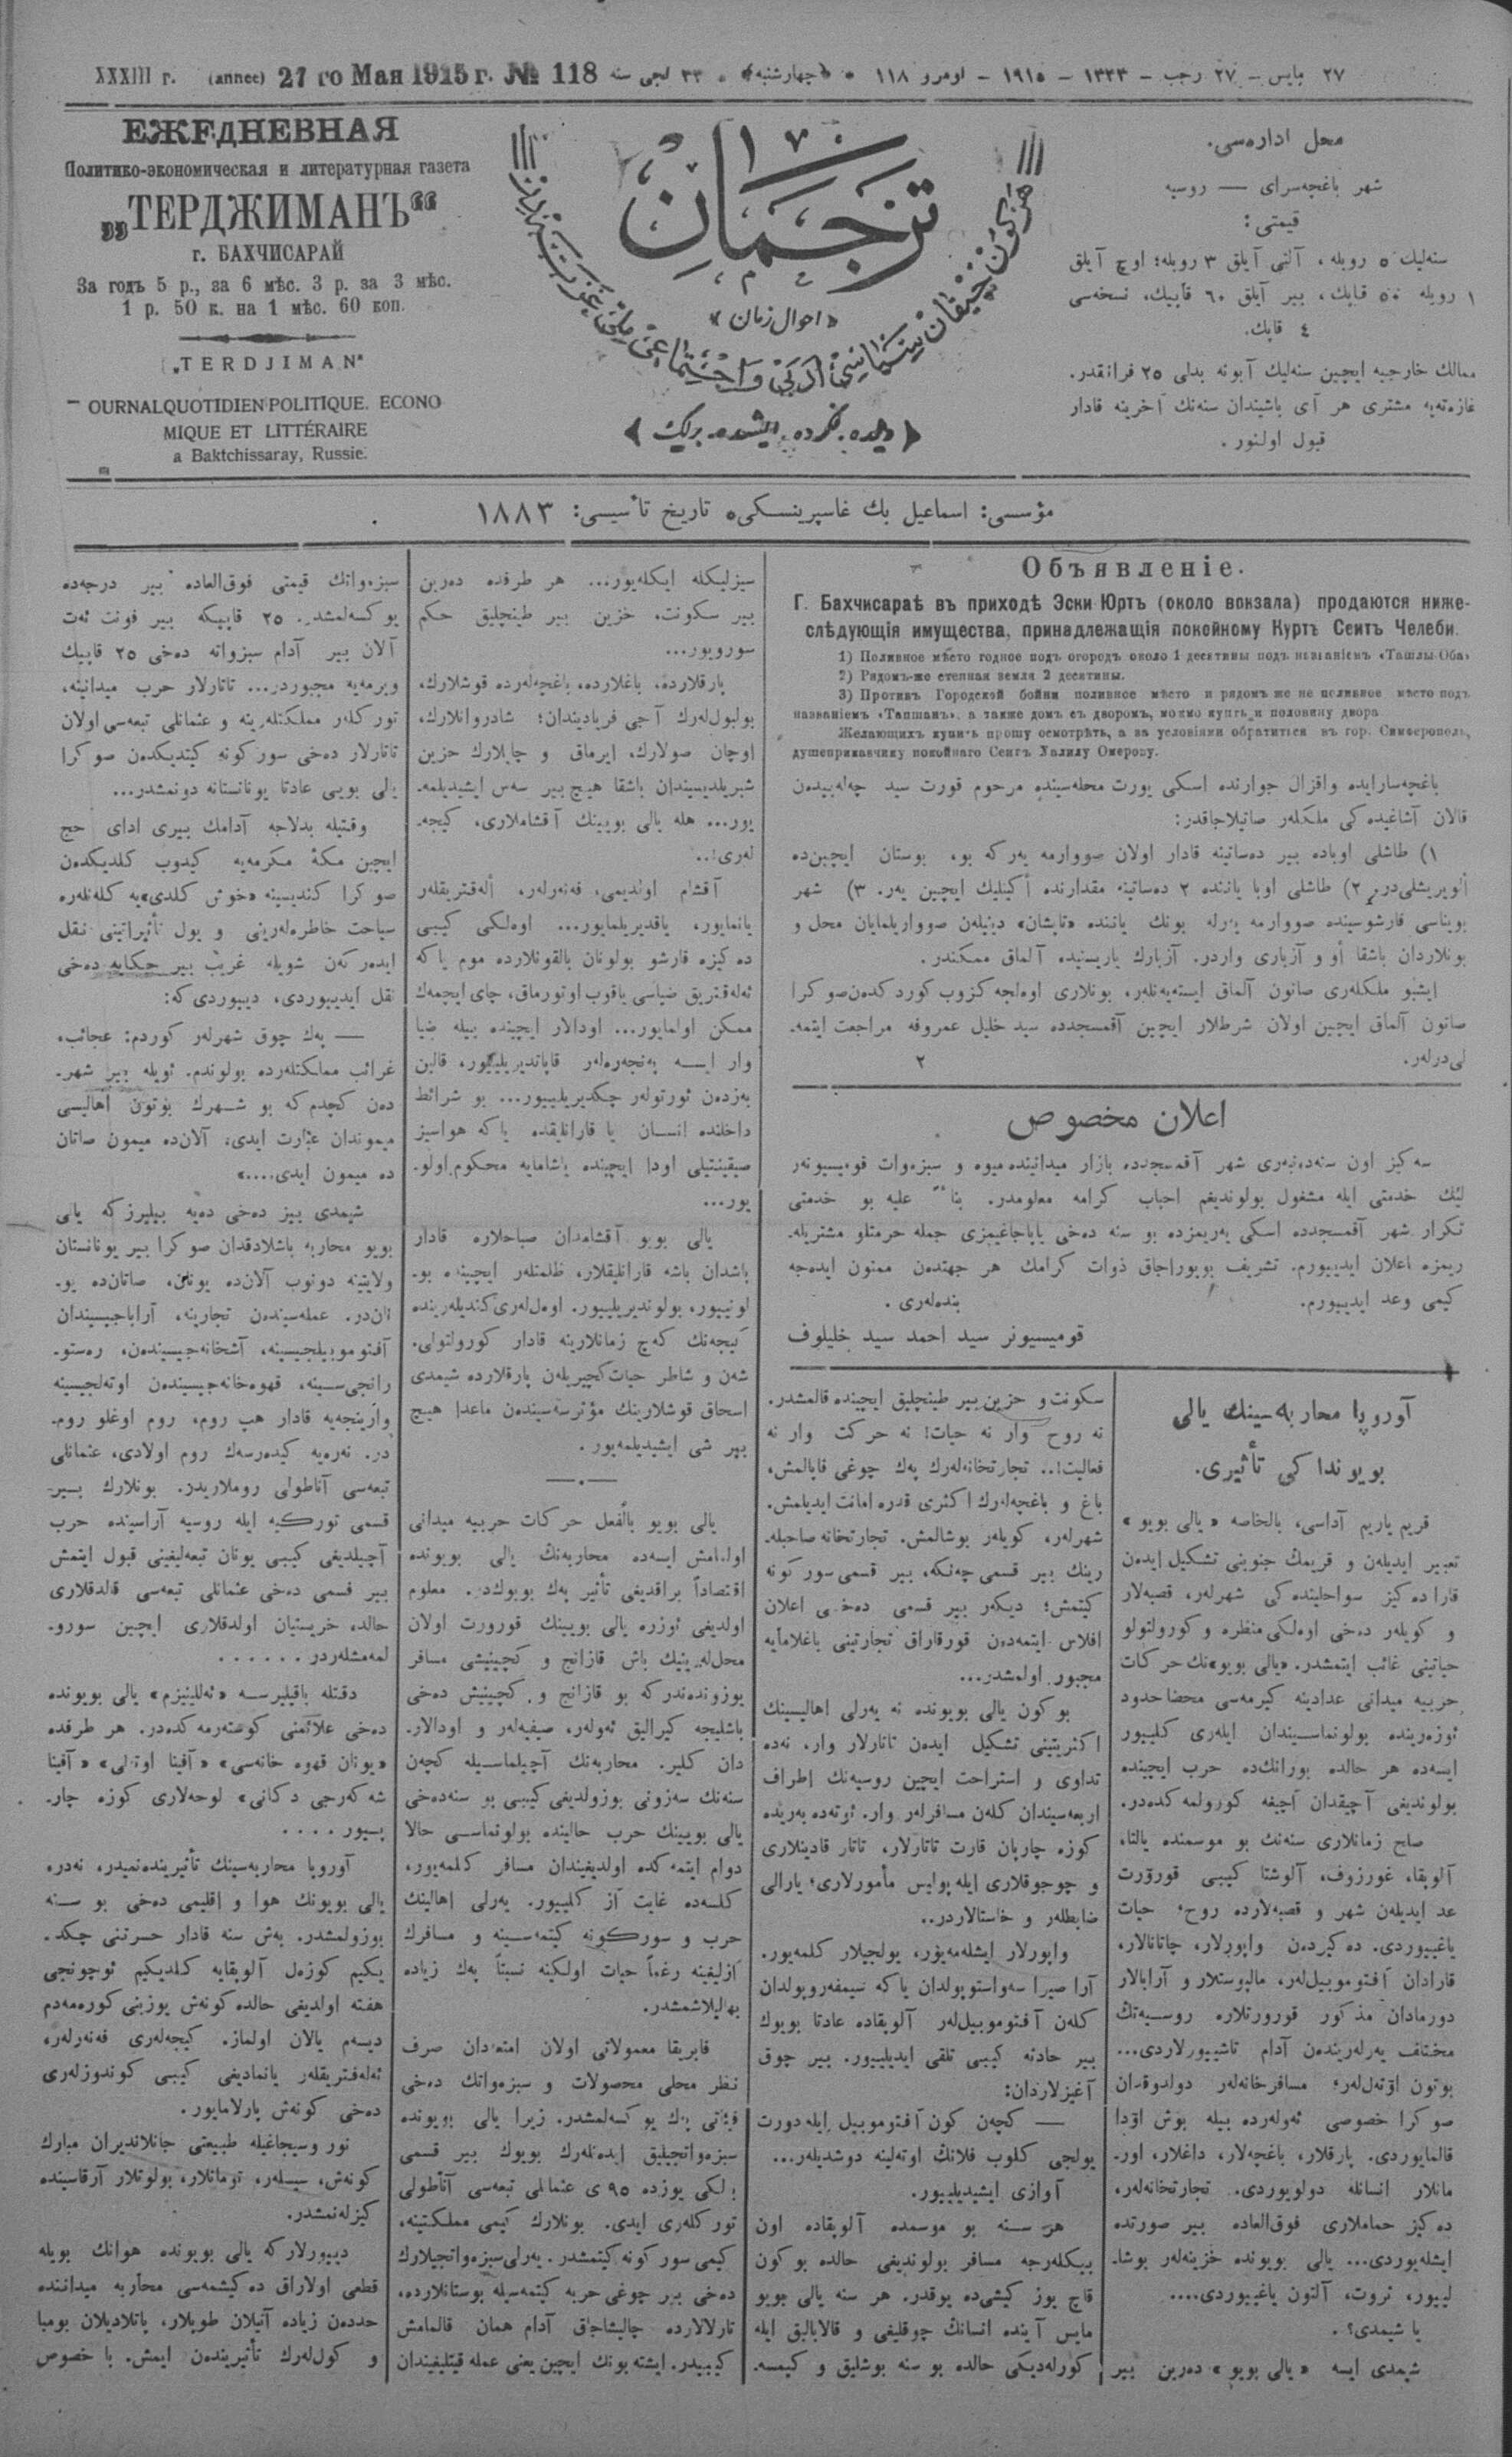 XXXIII г. (annee) 27 го Мая 1915 г. № 118 ٣٣ لجى سنه ٠ ﴿چهارشنبه﴾ ٠ اومرو ١١٨ – ١٩١٥ – ١٣٣٣ – ٢٧ رجب – ٢٧ مايس
ЕЖЕДНЕВНАЯ
Политико-экономическая и литературная газета
„ТЕРДЖИМАНЪ“
г. БАХЧИСАРАЙ
За годъ 5 р., за 6 мѣс. 3 р. за 3 мѣс.
1 р. 50 к. на 1 мѣс. 60 коп.
„TERDJIMAN“
OURNAL QUOTIDIEN POLITIQUE. ECONO
MIQUE ET LITTÉRAIRE
a Baktchissaray, Russie.
ترجمان
«احوال زمان»
﴿ديلده، فكرده، ايشده بيرلك﴾
محل اداره‌سى.
شهر باغچه‌سراى — روسيه
قيمتى:
سنه‌ليك ٥ روبله، آلتى آيلق ٣ روبله؛ اوچ آيلق
١ روبله ٥٠ قاپك، بير آيلق ٦٠ قاپيك، نسخه‌سى
٤ قاپك.
ممالك خارجيه ايچين سنه‌ليك آبونه بدلى ٢٥ فرانقدر.
غازه‌ته‌يه مشترى هر آى باشيندان سنه‌نك آخرينه قادار
قبول اولنور.
مؤسسى: اسماعيل بك غاسپرينسكى ٥ تاريخ تأسيسى: ١٨٨٣
Объявленіе.
Г. Бахчисараѣ въ приходѣ Эски-Юртъ (около вокзала) продаются ниже-
слѣдующія имущества, принадлежащія покойному Куртъ Сеитъ Челеби.
1) Поливное мѣсто годное подъ огородъ около 1 десятины подъ названіемъ «Ташлы-Оба»
2) Рядомъ-же степная земля 2 десятины.
3) Противъ Городской бойни поливное мѣсто и рядомъ же не поливное мѣсто подъ
названіемъ «Тапшанъ», а также домъ съ дворомъ, можно купить и половину двора
Желающихъ купить прошу осмотрѣть, а за условіями обратиться въ гор. Симферополь,
душеприказчику покойнаго Сеитъ Халилу Омерову.
باغچه‌سارايده واقزال جوارنده اسكى يورت محله‌سينده مرحوم قورت سيد چه‌له‌بيدەن
قالان آشاغيده‌كى ملكلەر صاتيلاجاقدر:
١) طاشلى اوباده بير دەساتينه قادار اولان صووارمه يەركه بو، بوستان ايچيندە
ألويريشلى‌در. ٢) طاشلى اوبا ياننده ٢ دەساتينه مقدارنده أكينليك ايچين يەر. ٣) شهر
بويناسى قارشوسينده صووارمه يەرله بونك ياننده «تاپشان» دينيلەن صوواريلمايان محل و
بونلاردان باشقا أو و آزبارى واردر. آزبارك ياريسنيده آلماق ممكندر.
ايشبو ملكلەرى صاتون آلماق ايستەيەنلەر، بونلارى اولجه كزوب كوردكدەن صوكرا
صاتون آلماق ايچين اولان شرطلار ايچين آقمسجدده سيد خليل عمروفه مراجعت ايتمه‌
لى‌درلەر. ٢
اعلان مخصوص
سەكيز اون سنه‌دەنبەرى شهر آقمسجدده بازار ميدانينده ميوه و سبزەوات قوميسيونەر
ليك خدمتى ايله مشغول بولونديغم احباب كرامه معلومدر. بناءً عليه بو خدمتى
تكرار شهر آقمسجدده اسكى يەريمزده بو سنه دەخى ياپاجاغيمزى جمله حرمتلو مشتريله‌
ريمزه اعلان ايدييورم. تشريف بويوراجاق ذوات كرامك هر جهتدەن ممنون ايدەجه
كيمى وعد ايدييورم. بندەلەرى.
قوميسيونر سيد احمد سيد خليلوف
آوروپا محاربه‌سينك يالى
بويونداكى تأثيرى.
قريم ياريم آداسى، بالخاصه «يالى بويو»
تعبير ايديلەن و قريمك جنوبنى تشكيل ايدەن
قارا دەكيز سواحلينده‌كى شهرلەر، قصبەلار
و كويلەر دەخى اولكى منظره و كورولتولو
حياتينى غائب ايتمشدر. «يالى بويو»نك حركات
حربيه ميدانى عدادينه كيرمه‌سى محضا حدود
ئوزەرينده بولونماسيندان ايلەرى كلييور
ايسه‌ده هر حالده بورانك‌ده حرب ايچينده
بولونديغى آچيقدان آچيغه كورولمه‌كدەدر.
صلح زمانلارى سنه‌نك بو موسمنده يالتا،
آلوپقا، غورزوف، آلوشتا كيبى قورورت
عد ايديلەن شهر و قصبەلارده روح، حيات
ياغييوردى. دەكيزدەن واپورلار، چاتانالار،
قارادان آفتوموبيل‌لەر، مالپوستلار و آرابالار
دورمادان مذكور قورورتلاره روسيه‌نك
مختلف يەرلەريندەن آدام تاشييورلاردى...
بوتون اوتەل‌لەر؛ مسافرخانه‌لەر دولدوقدان
صوكرا خصوصى ئەولەرده بيله بوش اودا
قالمايوردى. پارقلار، باغچەلار، داغلار، اور‌
مانلار انسانله دولويوردى. تجارتخانه‌لەر،
دەكيز حماملارى فوق‌العاده بير صورتده
ايشله‌يوردى... يالى بويونده خزينه‌لەر بوشا‌
لييور، ثروت، آلتون ياغييوردى....
يا شيمدى؟.
شيمدى ايسه «يالى بويو» دەرين بير
سكونت و حزين بير طينچليق ايچينده قالمشدر.
نه روح وار نه حيات! نه حركت وار نه
فعاليت!.. تجارتخانه‌لەرك پەك چوغى قاپالمش،
باغ و باغچه‌لەرك اكثرى قدره امانت ايديلمش.
شهرلەر، كويلەر بوشالمش. تجارتخانه صاحبله‌
رينك بير قسمى چەتكه، بير قسمى سوركونه
كيتمش؛ ديكەر بير قسمى دەخى اعلان
افلاس ايتمەدەن قورقاراق تجارتينى باغلامايه
مجبور اولمشدر...
بو كون يالى بويونده نه يەرلى اهاليسينك
اكثريتينى تشكيل ايدەن تاتارلار وار، نه‌ده
تداوى و استراحت ايچين روسيه‌نك اطراف
اربعه‌سيندان كلەن مسافرلەر وار. ئوتەده بەريده
كوزه چارپان قارت تاتارلار، تاتار قادينلارى
و چوجوقلارى ايله پوليس مأمورلارى؛ يارالى
ضابطلەر و خاستالاردر..
واپورلار ايشله‌مه‌يور، يولجيلار كلمه‌يور.
آرا صيرا سەواستوپولدان ياكه سيمفەروپولدان
كلەن آفتوموبيل‌لەر آلوپقاده عادتا بويوك
بير حادثه كيبى تلقى ايديلييور. بير چوق
آغيزلاردان:
— كچەن كون آفتوموبيل ايله دورت
يولجى كلوب فلانك اوتەلينه دوشديلەر...
آوازى ايشيديلييور.
هر سنه بو موسمده آلوپقاده اون
بيكلەرجه مسافر بولونديغى حالده بوكون
قاچ يوز كيشى‌ده يوقدر. هر سنه يالى بويو
مايس آينده انسانك چوقليغى و قالابالق ايله
كورله‌ديكى حالده بو سنه بوشليق و كيمسه‌
سيزليكله ايكله‌يور... هر طرفده دەرين
بير سكونت، حزين بير طينچليق حكم
سورويور...
پارقلارده، باغلارده، باغچه‌لەرده قوشلارك،
بولبول‌لەرك آجى فرياديندان؛ شادروانلارك،
اوچان صولارك، ايرماق و چايلارك حزين
شيريلديسيندان باشقا هيچ بير سەس ايشيديلمه‌
يور... هله يالى بويينك آقشاملارى، كيجه‌
لەرى!..
آقشام اولديمى، فەنەرلەر، ألەقتريقلەر
يانمايور، ياقديريلمايور... اولكى كيبى
دەكيزه قارشو بولونان بالقونلارده موم ياكه
ئەلەقتريق ضياسى ياقوب اوتورماق، چاى ايچمەك
ممكن اولمايور... اودالار ايچينده بيله ضيا
وار ايسه پەنجەرەلەر قاپانديريلييور، قالين
بەزدەن ئورتولەر چكديريلييور... بو شرائط
داخلنده انسان يا قارانليقده ياكه هواسيز
صيقينتيلى اودا ايچينده ياشامايه محكوم اولو‌
يور...
يالى بويو آقشامدان صباحلاره قادار
باشدان باشه قارانليقلار، ظلمتلەر ايچينده بو‌
لونييور، بولونديريلييور. اول‌لەرى كنديلەرينده
كيجه‌نك كەچ زمانلارينه قادار كورولتولى،
شەن و شاطر حيات كچيريلەن پارقلارده شيمدى
اسحاق قوشلارينك مؤثر سەسيندەن ماعدا هيچ
بير شى ايشيديلمه‌يور.
يالى بويو بالفعل حركات حربيه ميدانى
اولمامش ايسه‌ده محاربه‌نك يالى بويونده
اقتصاداً براقديغى تأثير پەك بويوكدر. معلوم
اولديغى ئوزره يالى بويينك قورورت اولان
محل‌لەرينيك باش قازانج و كچينيشى مسافر
يوزوندەندر كه بو قازانج و كچينيش دەخى
باشليجه كيراليق ئەولەر، صيفيه‌لەر و اودالار‌
دان كلير. محاربه‌نك آچيلماسيله كچەن
سنه‌نك سەزونى بوزولديغى كيبى بو سنه‌دەخى
يالى بويينك حرب حالينده بولونماسى حالا
دوام ايتمه‌كده اولديغيندان مسافر كلمه‌يور،
كلسه‌ده غايت آز كلييور. يەرلى اهالينك
حرب و سوركونه كيتمه‌سينه و مسافرك
آزليغينه رغماً حيات اولكينه نسبتاً پەك زياده
بهاليلاشمشدر.
فابريقا معمولاتى اولان امتعه‌دان صرف
نظر محلى محصولات و سبزەواتك دەخى
فيئاتى پەك يوكسه‌لمشدر. زيرا يالى بويونده
سبزەواتجيليق ايدەنلەرك بويوك بير قسمى
بلكى يوزده ٩٥ ى عثمانلى تبعه‌سى آناطولى
توركلەرى ايدى. بونلارك كيمى مملكتينه،
كيمى سوركونه كيتمشدر. يەرلى سبزەواتجيلارك
دەخى بير چوغى حربه كيتمه‌سيله بوستانلارده،
تارلالارده چاليشاجاق آدام همان قالمامش
كيبيدر. ايشته بونك ايچين يعنى عمله قيتليغيندان
سبزەواتك قيمتى فوق‌العاده بير درجه‌ده
يوكسه‌لمشدر. ٢٥ قاپيكه بير فونت ئەت
آلان بير آدام سبزواته دەخى ٢٥ قاپيك
ويرمه‌يه مجبوردر... تاتارلار حرب ميدانينه،
توركلەر مملكتلەرينه و عثمانلى تبعه‌سى اولان
تاتارلار دەخى سوركونه كيتديكدەن صوكرا
يالى بويى عادتا يونانستانه دونمشدر...
وقتيله بدلاجه آدامك بيرى اداى حج
ايچين مكۀ مكرمه‌يه كيدوب كلديكدەن
صوكرا كنديسينه «خوش كلدى»يه كلەنلەره
سياحت خاطرەلەرينى و يول تأثيراتينى نقل
ايدەركەن شويله غريب بير حكايه دەخى
نقل ايدييوردى، دييوردى‌كه:
— پەك چوق شهرلەر كوردم: عجائب،
غرائب مملكتلەرده بولوندم. ئويله بير شهر‌
دەن كچدم كه بو شهرك بوتون أهاليسى
ميموندان عبارت ايدى، آلان‌ده ميمون صاتان
ده ميمون ايدى....»
شيمدى بيز دەخى دەيه بيليرز كه يالى
بويو محاربه باشلادقدان صوكرا بير يونانستان
ولايتينه دونوب آلان‌ده يونان، صاتان‌ده يو‌
نان‌در. عمله‌سيندەن تجارينه، آراباجيسيندان
آفتوموبيلجيسينه، آشخانه‌جيسيندەن، رەستو‌
رانجى‌سينه، قهوەخانه‌جيسيندەن اوتەلجيسينه
وارينجه‌يه قادار هپ روم، روم اوغلو روم‌
در. نەرەيه كيدەرسەك روم اولادى، عثمانلى
تبعه‌سى آناطولى روملاريدر. بونلارك بير
قسمى توركيه ايله روسيه آراسينده حرب
آچيلديغى كيبى يونان تبعه‌ليغينى قبول ايتمش
بير قسمى دەخى عثمانلى تبعه‌سى قالدقلارى
حالده خريستيان اولدقلارى ايچين سورو‌
لمه‌مشلەردر......
دقتله باقيليرسه «ئەللينيزم» يالى بويونده
دەخى علائمنى كوسترمه‌كدەدر. هر طرفده
«يونان قهوه خانه‌سى» «آفينا اوتلى» «آفينا
شەكەرجى دكانى» لوحه‌لارى كوزه چار‌
پييور....
آوروپا محاربه‌سينك تأثيريندەنميدر، نەدر،
يالى بويونك هوا و اقليمى دەخى بو سنه
بوزولمشدر. بەش سنه قادار حسرتنى چكد‌
يكيم كوزەل آلوپقايه كلديكيم ئوچونجى
هفته اولديغى حالده كونەش يوزينى كورەمەدم
ديسەم يالان اولماز. كيجه‌لەرى فەنەرلەر،
ئەلەقتريقلەر يانماديغى كيبى كوندوزلەرى
دەخى كونەش پارلامايور.
نور و سيجاغيله طبيعتى جانلانديران مبارك
كونەش، سيسلەر، تومانلار، بولوتلار آرقاسينده
كيزله‌نمشدر.
دييورلاركه يالى بويونده هوانك بويله
قطعى اولاراق دەكيشمه‌سى محاربه ميداننده
حددەن زياده آتيلان طوپلار، پاتلاديلان بومبا
و كول‌لەرك تأثيريندەن ايمش. با خصوص